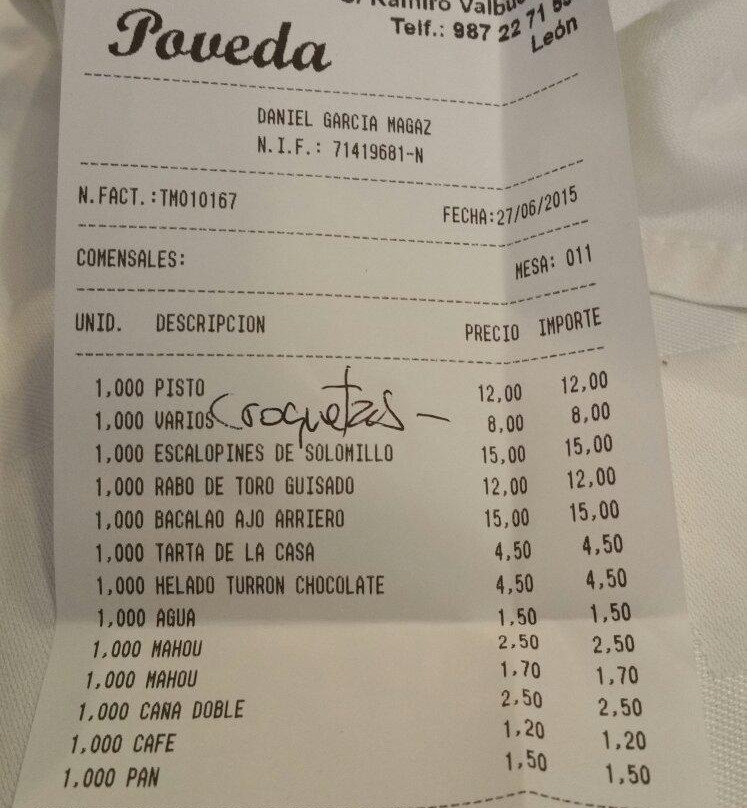 Ramiro
Telf.: 987 22 71
León
Poveda
DANIEL GARCIA MAGAZ
N.I.F.: 71419681-N
N.FACT.:TM010167 FECHA:27/06/2015
COMENSALES: MESA: 011
UNID. DESCRIPCION PRECIO IMPORTE
1,000 PISTO 12,00 12,00
1,000 VARIOS Croquetas — 8,00 8,00
1,000 ESCALOPINES DE SOLOMILLO 15,00 15,00
1,000 RABO DE TORO GUISADO 12,00 12,00
1,000 BACALAO AJO ARRIERO 15,00 15,00
1,000 TARTA DE LA CASA 4,50 4,50
1,000 HELADO TURRON CHOCOLATE 4,50 4,50
1,000 AGUA 1,50 1,50
1,000 MAHOU 2,50 2,50
1,000 MAHOU 1,70 1,70
1,000 CANA DOBLE 2,50 2,50
1,000 CAFE 1,20 1,20
1,000 PAN 1,50 1,50